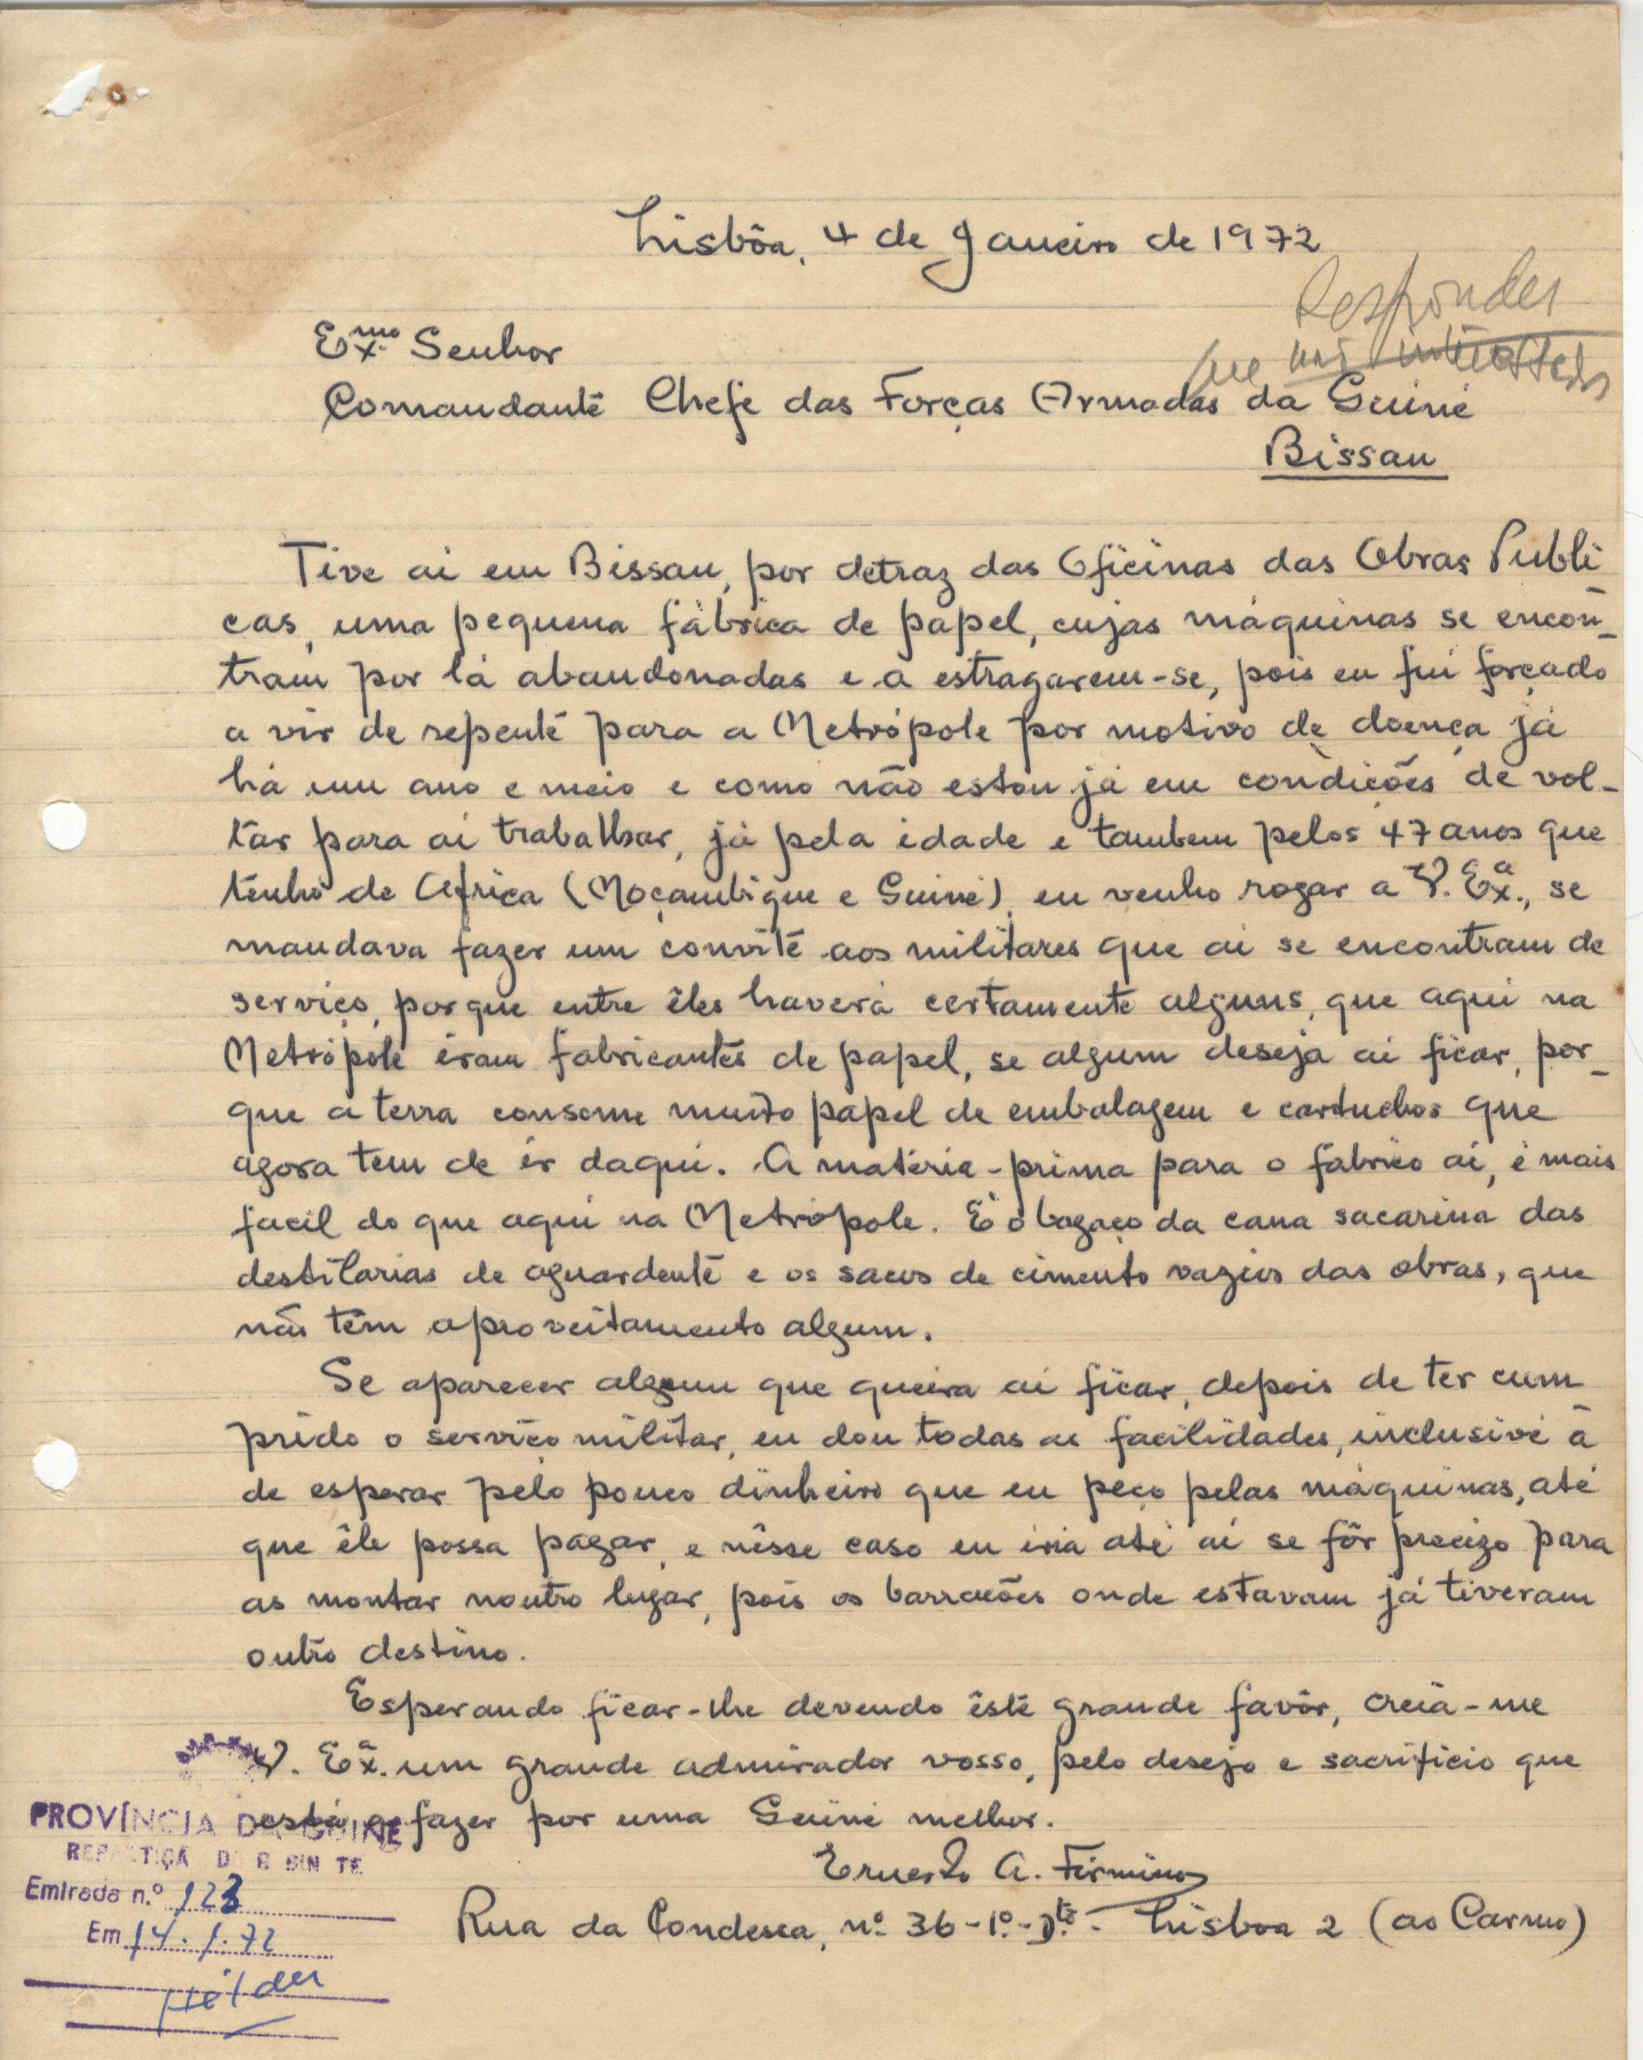 Lisbôa, 4 de Janeiro de 1972
Responder
que não interessa
Ex.mo Senhor
Comandante Chefe das Forças Armadas da Guiné
Bissau
Tive ai em Bissau, por detraz das Oficinas das Obras Publi
cas, uma pequena fábrica de papel, cujas máquinas se encon-
tram por lá abandonadas e a estragarem-se, pois eu fui forçado
a vir de repente para a Metrópole por motivo de doença já
há um ano e meio e como não estou já em condições de vol-
tar para aí trabalhar, já pela idade e tambem pelos 47 anos que
tenho de Africa (Moçambique e Guiné), eu venho rogar a V. Ex.a, se
mandava fazer um convite aos militares que aí se encontram de
serviço, porque entre êles haverá certamente alguns, que aqui na
Metrópole éram fabricantes de papel, se algum deseja aí ficar, por-
que a terra consome muito papel de embalagem e cartuchos que
agora tem de ir daqui. A matéria-prima para o fabrico aí, é mais
facil do que aqui na Metrópole. É o bagaço da cana sacarina das
destilarias de aguardente e os sacos de cimento vazios das obras, que
não têm aproveitamento algum.
Se aparecer algum que queira aí ficar, depois de ter cum
prido o serviço militar, eu dou todas as facilidades, inclusivé a
de esperar pelo pouco dinheiro que eu peço pelas máquinas, até
que êle possa pagar, e nêsse caso eu iria até aí se fôr precizo para
as montar noutro lugar, pois os barracões onde estavam já tiveram
outro destino.
Esperando ficar-lhe devendo êste grande favôr, creia-me
V. Ex.a um grande admirador vosso, pelo desejo e sacrificio que
está a fazer por uma Guiné melhor.
Ernesto A. Firmino
Rua da Condessa, nº 36-1º-Dtº- Lisboa 2 (ao Carmo)
PROVÍNCIA DA GUINÉ
REPARTIÇÃ D G BIN TE
Entrada n.º 123
Em 14.1.72
Hélder